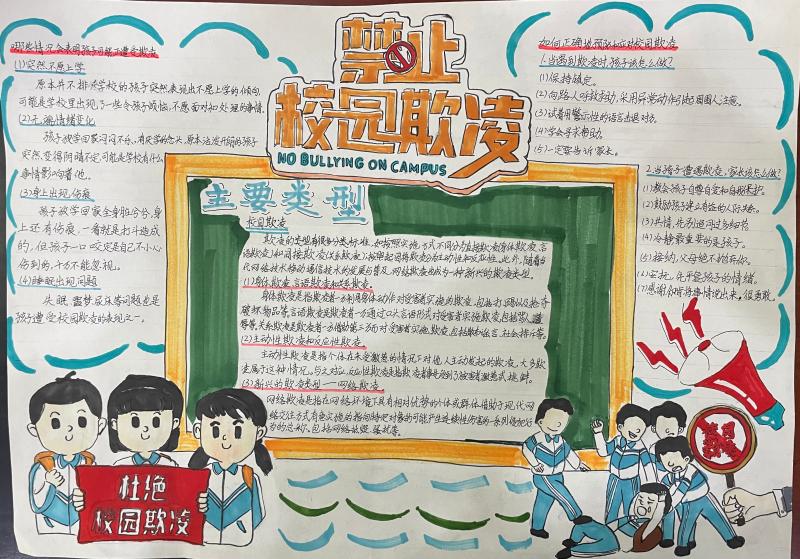 禁止
校园欺凌
NO BULLYING ON CAMPUS
哪些情况会表明孩子可能正遭受欺凌
(1)突然不愿上学
原本并不排斥学校的孩子突然表现出不愿上学的倾向,
可能是学校里出现了一些令孩子烦恼,不愿面对和处理的事情。
(2)无端情绪变化
孩子放学回家闷闷不乐、有厌学的念头,原本活泼开朗的孩子
突然变得阴晴不定可能是学校有什么
事情影响着他。
(3)身上出现伤痕
孩子放学回家全身脏兮兮,身
上还有伤痕,一看就是打斗造成
的,但孩子一口咬定是自己不小心
伤到的,千万不能忽视。
(4)睡眠出现问题
失眠、噩梦或尿床问题也是
孩子遭受校园欺凌的表现之一。
主要类型
校园欺凌
欺凌的类型有很多分类标准,如按照实施方式不同分为直接欺凌(身体欺凌、言
语欺凌)和间接欺凌(关系欺凌);按照起因将欺凌分为主动性和反应性。此外,随着当
代网络技术移动通信技术的发展与普及,网络欺凌也成为一种新兴的欺凌类型。
(1)身体欺凌、言语欺凌和关系欺凌。
身体欺凌是指欺凌者一方利用身体动作对受害者实施的欺凌,包括打、踢以及抢夺
破坏物品等;言语欺凌是欺凌者一方通过口头言语形式对受害者实施欺凌,包括骂、嘲
辱等;关系欺凌是欺凌者一方借助第三方而对受害者实施欺凌,包括散布谣言、社会排斥等。
(2)主动性欺凌和反应性欺凌
主动性欺凌是指个体在未受激惹的情况下对他人主动发起的欺凌,大多欺
凌属于这种情况。与之对应,反应性欺凌是指欺凌者事是受到了被害者激惹或挑衅。
(3)新兴的欺凌类型——网络欺凌
网络欺凌是指在网络环境下具有相对优势的个体或群体借助于现代网
络交往方式有意实施的指向特定对象的可能产生连续性伤害的一系列侵犯行
为的总称。包括网络诋毁、骚扰等。
如何正确地预防和应对校园欺凌
1.当遇到欺凌时,孩子该怎么做?
(1)保持镇定。
(2)向路人呼救求助,采用异常动作引起周围人注意。
(3)试着用警示性的语言击退对方。
(4)学会寻求帮助。
(5)一定要告诉家长。
2.当孩子遭遇欺凌,家长该怎么做?
(1)教会孩子自尊自爱和自我保护。
(2)鼓励孩子建立有益的人际关系。
(3)共情,先别追问过多细节
(4)冷静最重要的是孩子。
(5)接纳,父母绝不抱有你。
(6)安抚,先平稳孩子的情绪。
(7)感谢你能将事情说出来,很勇敢。
杜绝
校园欺凌